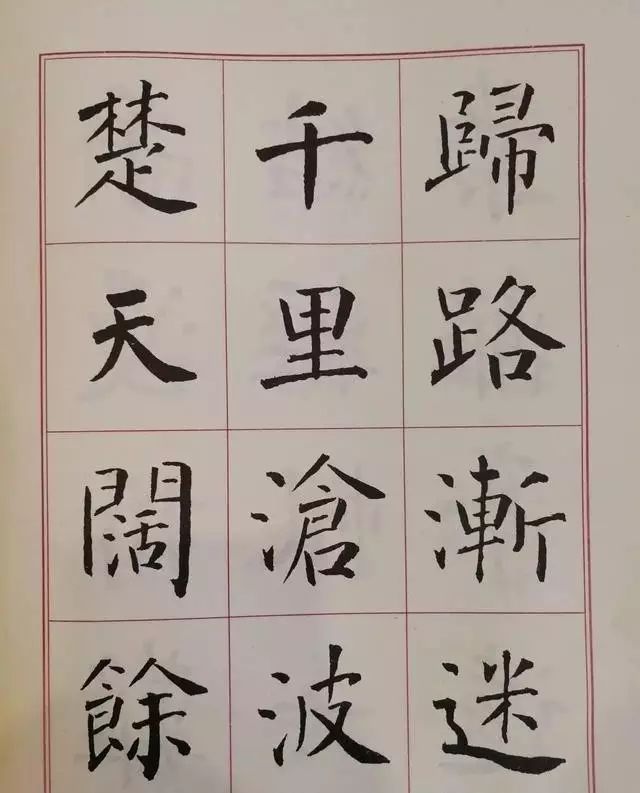 歸路漸迷
千里滄波
楚天闊餘